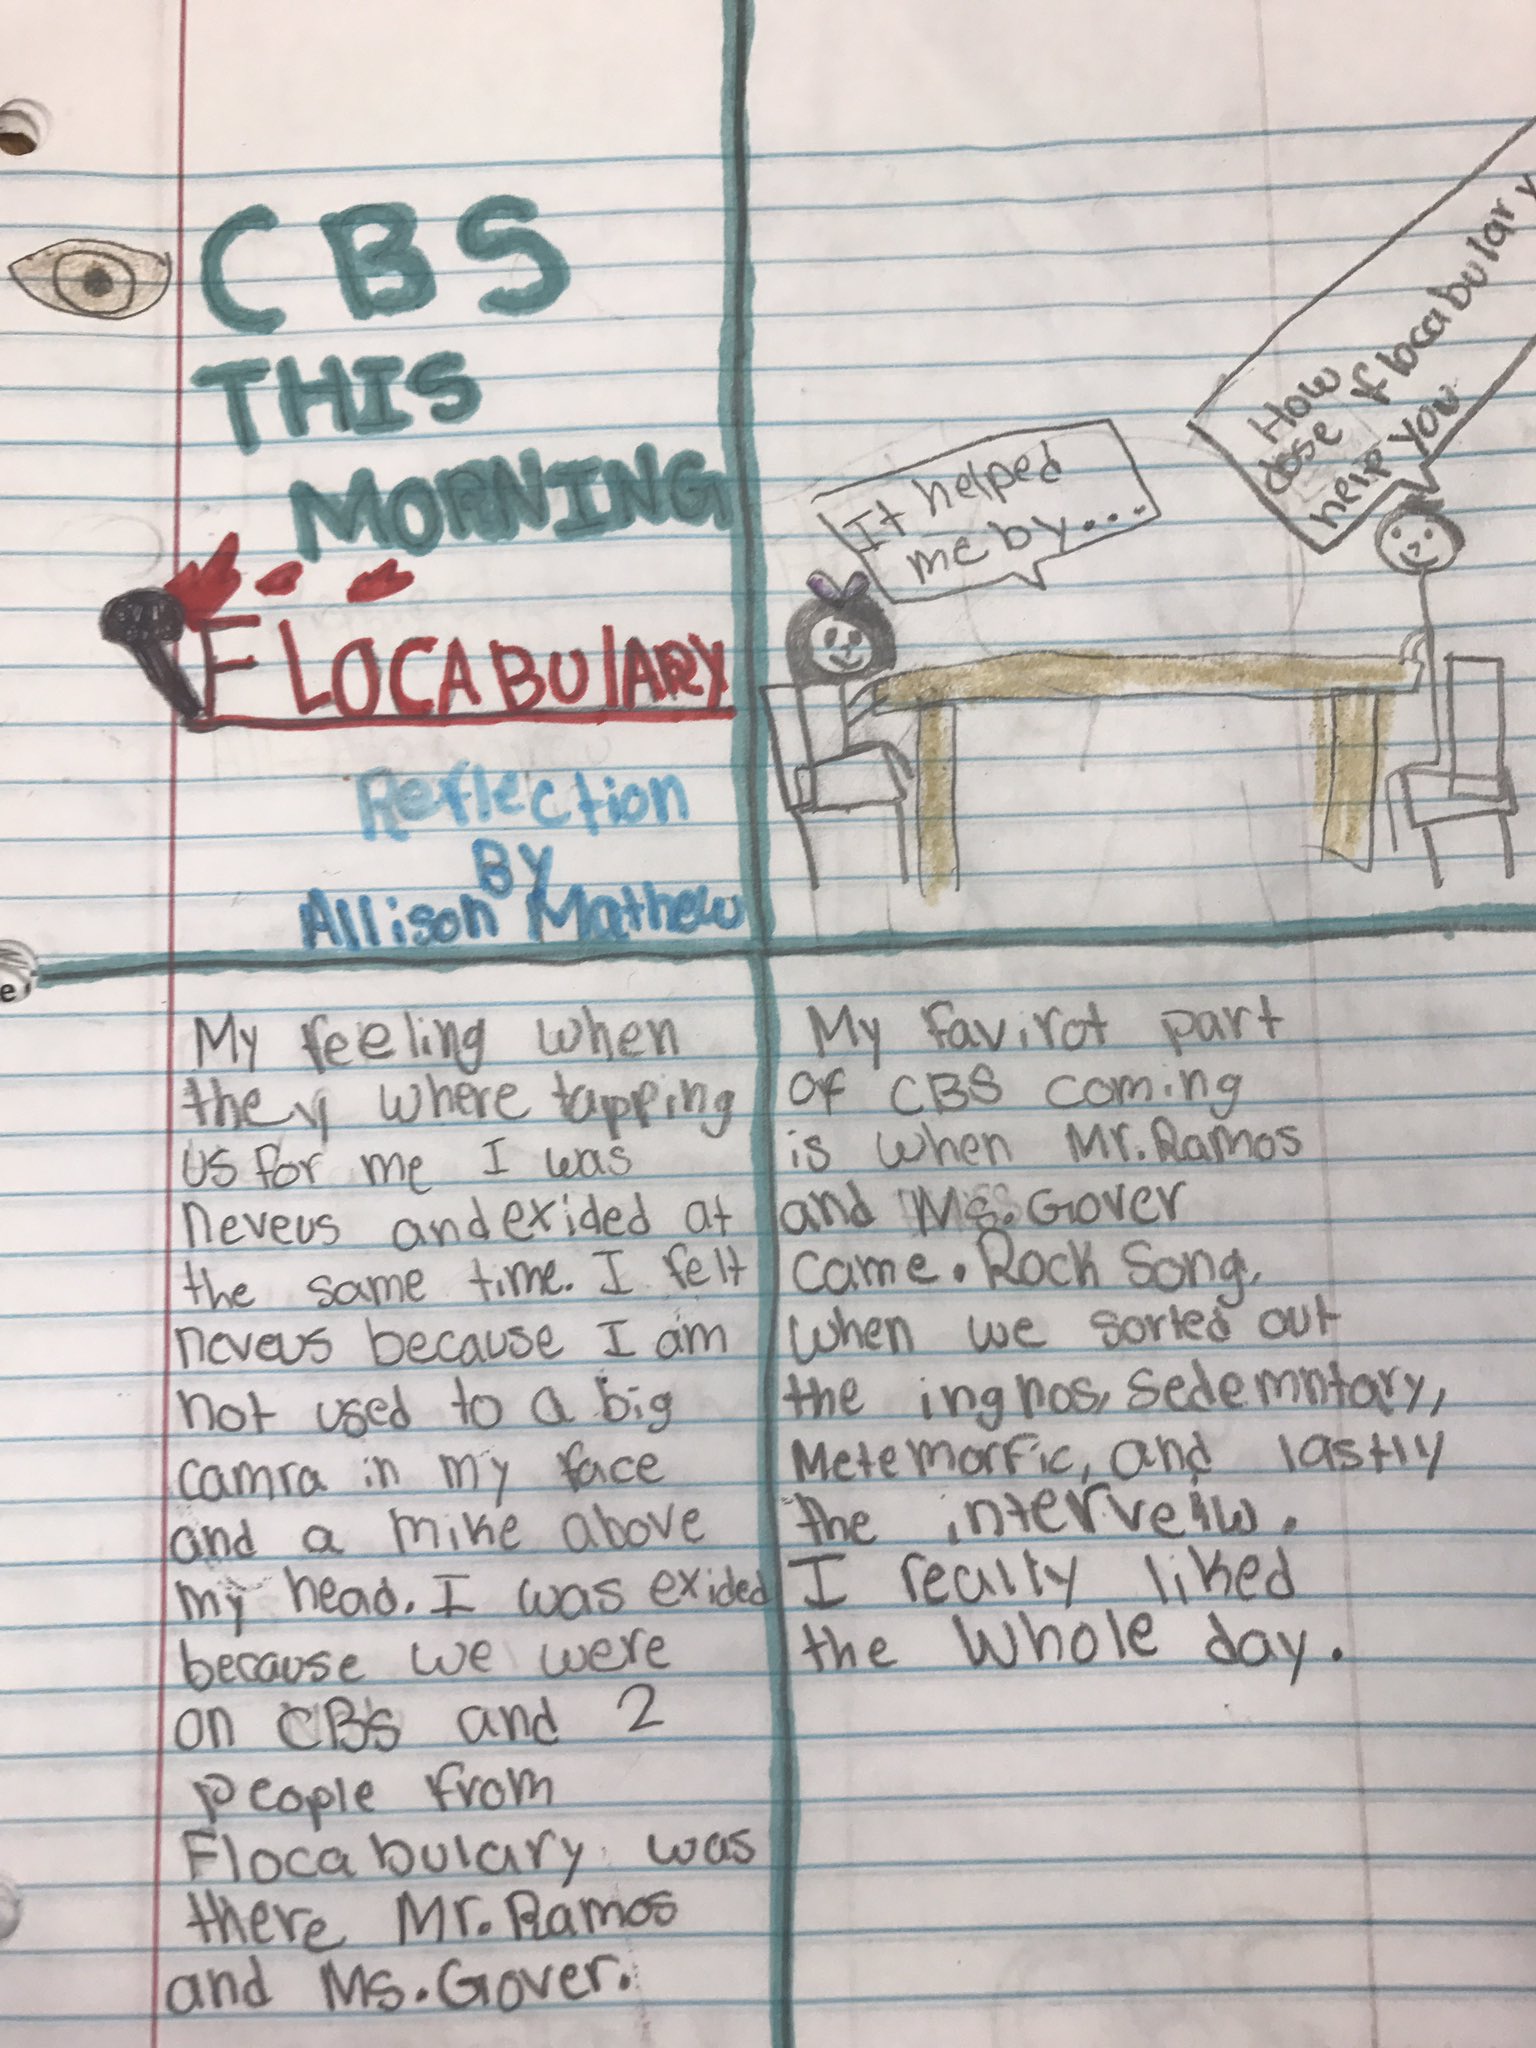 CBS
THIS
MORNING
FLOCABULARY
Reflection
By
Allison Mathew
It helped
me by...
How
dose flocabulary
help you
My feeling when
they where tapping
us for me I was
neveus and exided at
the same time. I felt
neveus because I am
not used to a big
camra in my face
and a mike above
my head. I was exided
because we were
on CBS and 2
people from
Flocabulary was
there Mr. Ramos
and Ms. Gover.
My favirot part
of CBS coming
is when Mr. Ramos
and Ms. Gover
came. Rock Song,
when we sorted out
the ingnos, sedemntary,
Metemorfic, and lastly
the interveiw.
I really liked
the whole day.
e